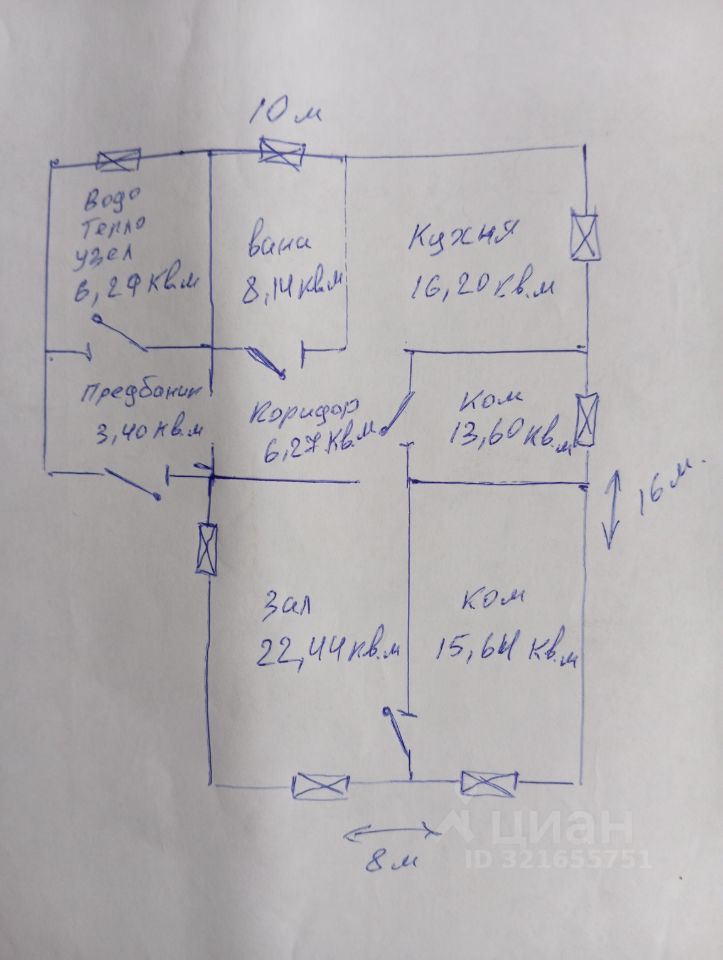 10 м
Водо
Тепло
узел
6,29 кв.м
вана
8,14 кв.м
Кухня
16,20 кв.м
Предбаник
3,40 кв.м
Коридор
6,27 кв.м
Ком
13,60 кв.м
16 м.
Зал
22,44 кв.м
Ком
15,64 кв.м
8 м
циан
ID 321655751